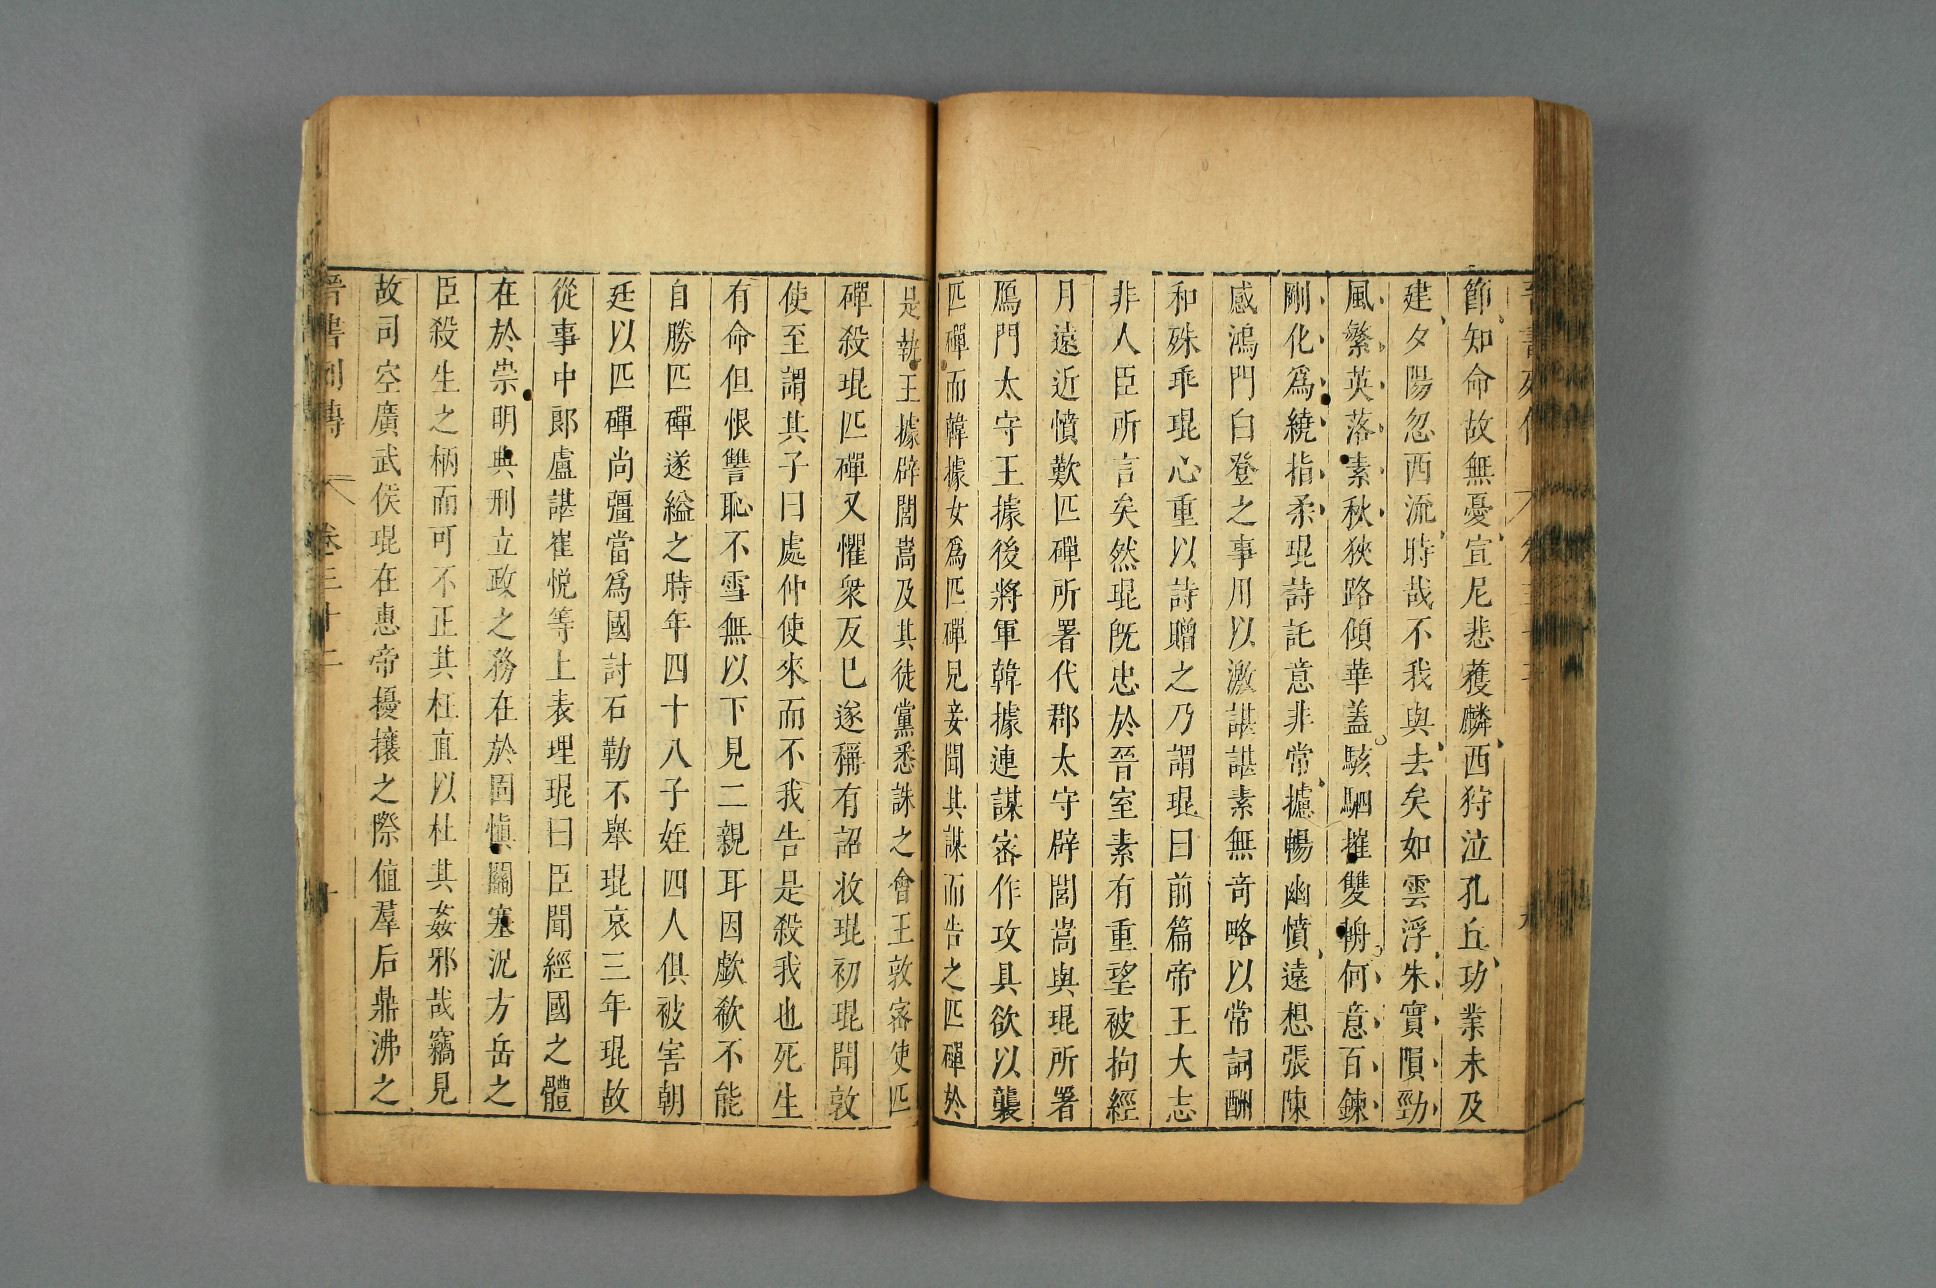 節知命故無憂宣尼悲獲麟西狩泣孔丘功業未及
建夕陽忽西流時哉不我與去矣如雲浮朱實隕勁
風繁英落素秋狹路傾華蓋駭駟摧雙輈何意百鍊
剛化爲繞指柔琨詩託意非常攄暢幽憤遠想張陳
感鴻門白登之事用以激諶諶素無奇略以常詞酬
和殊乖琨心重以詩贈之乃謂琨曰前篇帝王大志
非人臣所言矣然琨旣忠於晉室素有重望被拘經
月遠近憤歎匹磾所署代郡太守辟閭嵩與琨所署
鴈門太守王據後將軍韓據連謀密作攻具欲以襲
匹磾而韓據女爲匹磾見妾聞其謀而告之匹磾於
是執王據辟閭嵩及其徒黨悉誅之會王敦密使匹
磾殺琨匹磾又懼衆反巳遂稱有詔收琨初琨聞敦
使至謂其子曰處仲使來而不我告是殺我也死生
有命但恨讐恥不雪無以下見二親耳因歔欷不能
自勝匹磾遂縊之時年四十八子姪四人俱被害朝
廷以匹磾尚彊當爲國討石勒不舉琨哀三年琨故
從事中郎盧諶崔悅等上表理琨曰臣聞經國之體
在於崇明典刑立政之務在於固愼關塞況方岳之
臣殺生之柄而可不正其枉直以杜其姦邪哉竊見
故司空廣武侯琨在惠帝擾攘之際値羣后鼎沸之
晉書列傳 卷三十二 十